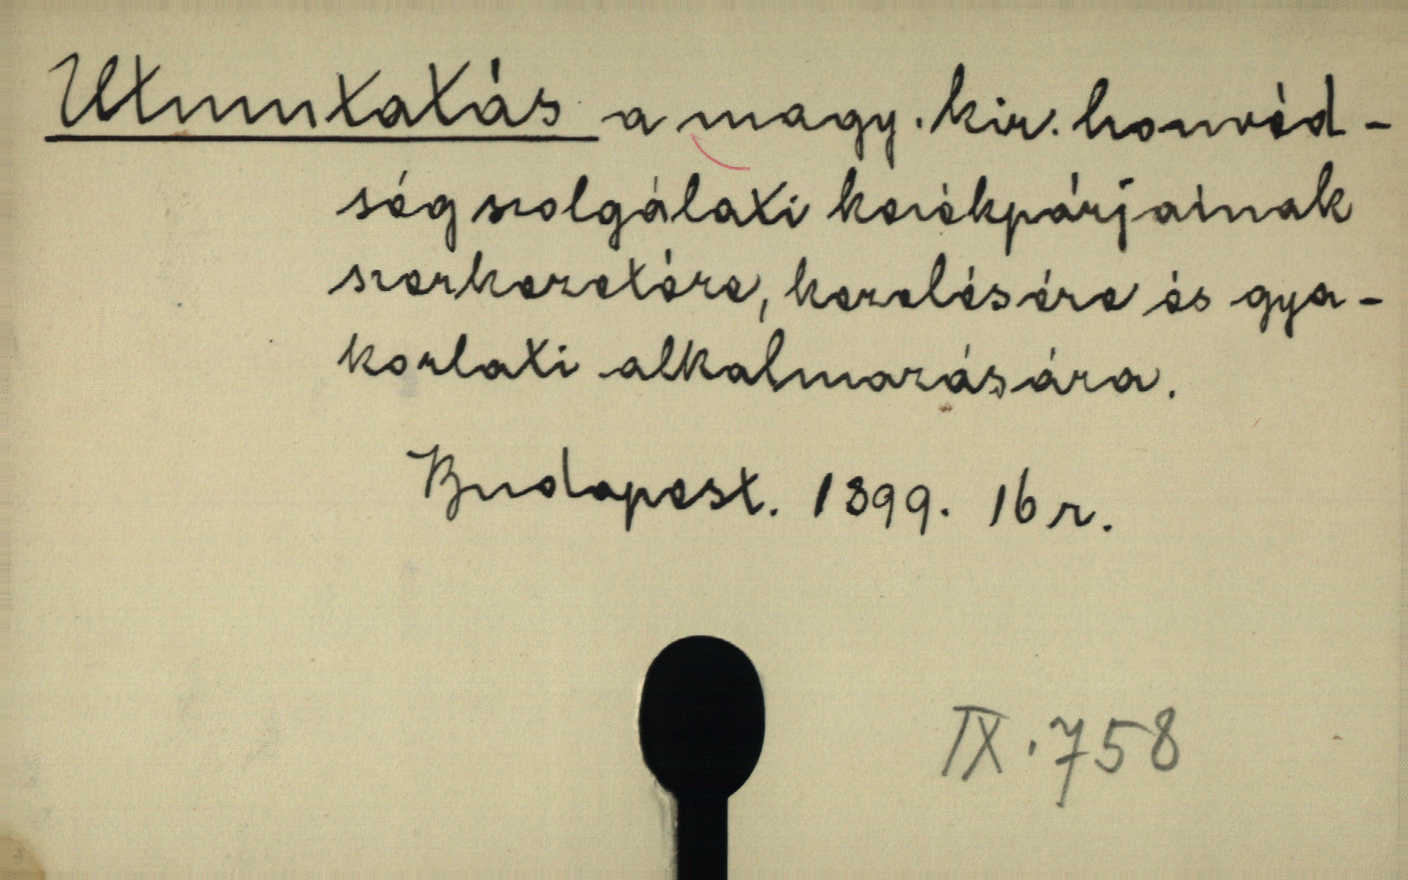 Utmutatás a magy. kir. honvéd-
ség szolgálati kerékpárjainak
szerkezetére, kezelésére és gya-
korlati alkalmazására.
Budapest. 1899. 16 r.
IX. 758